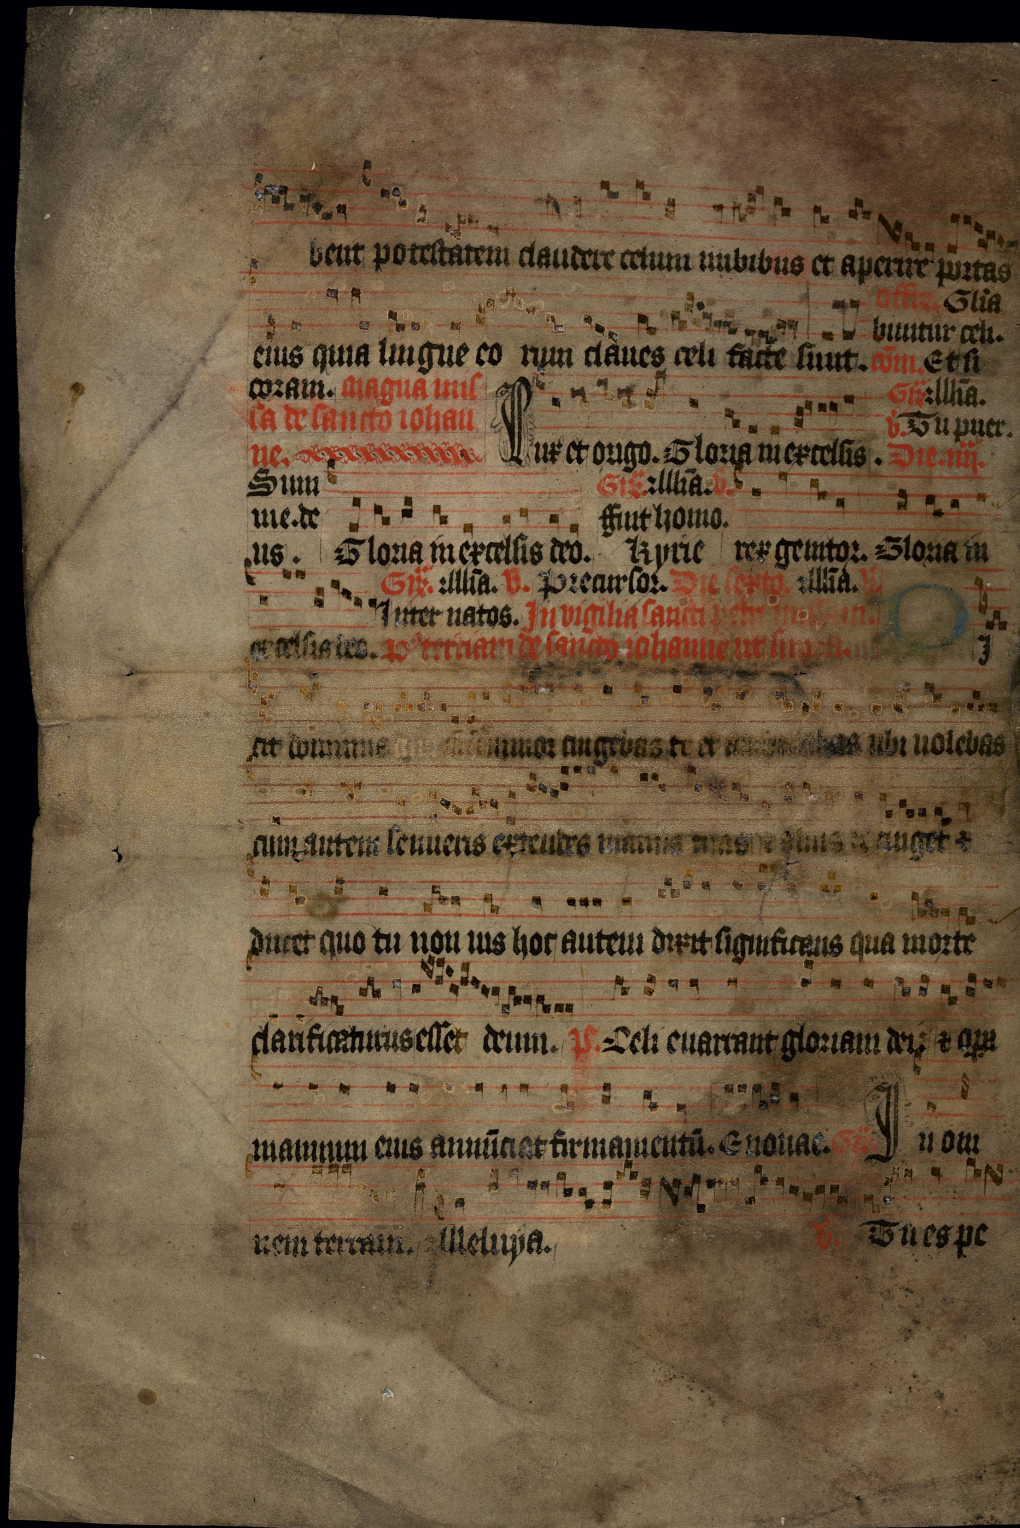 bent potestatem claudere celum nubibus et aperire portas
offer. Gl̄ia
buntur celi.
eius quia lingue eo rum claues celi facte sunt. cōm. Et si
coram. Magna mis
Gr̄. Alll̄ia.
sa de sancto iohan
v̄. Tu puer.
ne. Pur et origo. Gloria in excelsis. Die. iiij.
Sum
Gr̄. Alll̄ia. v̄.
me. de
ffuit homo.
us. Gloria in excelsis deo. Kyrie rex genitor. Gloria in
Gr̄. Alll̄ia. v̄. Precursor. Die sexto. Alll̄ia. v̄.
Inter natos. In vigilia sancti petri
excelsis deo. tertiam de sancto iohanne ut supra. D I
cit dominus iunior cingebas te et ubi uolebas
cum autem senueris extendes manus tuas et cinget et
ducet quo tu non uis hoc autem dixit significans qua morte
clarificaturus esset deum. ps. Celi enarrant gloriam dei et opa
manuum eius annūciat firmamentū. Euouae. Gr̄. In om
nem terram. Alleluya. v̄. Tu es pe